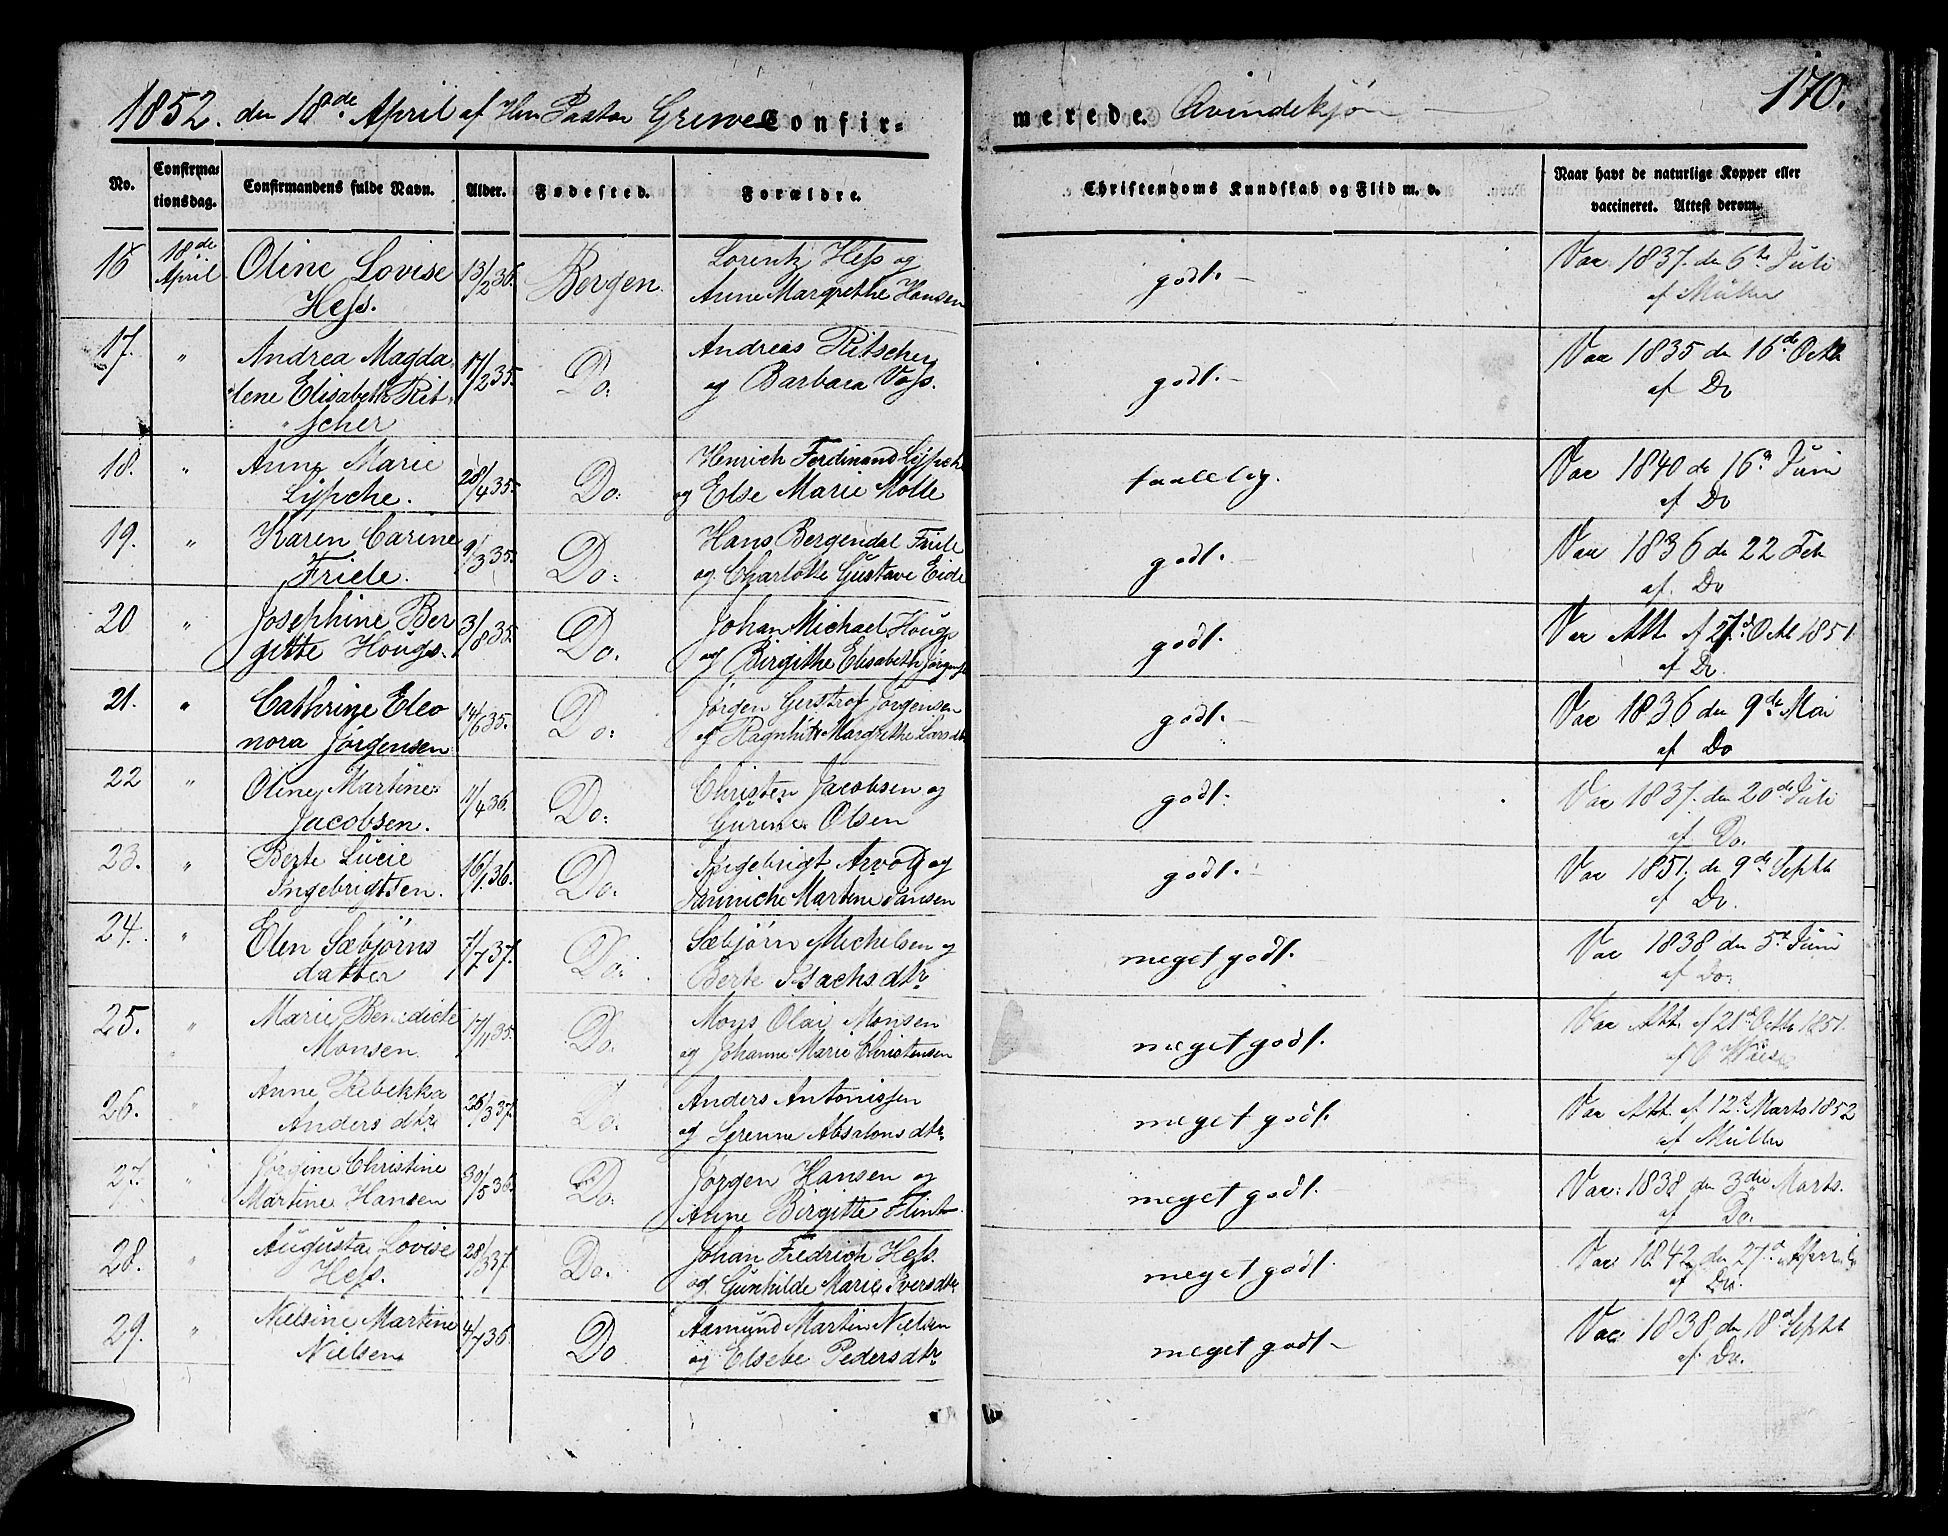 1852. den 18de April af Herr Pastor Grewe Confir-
merede. Qvindekjøn 170.
No. Confirma- Confirmandens fulde Navn. Alder. Fødested. Forældre.
tionsdag.
Christendoms Kundskab og Flid m. v. Naar havt de naturlige Kopper eller
vaccineret. Attest derom.
16 18de Oline Lovise 13/2 36. Bergen. Lorentz Hess og godt. Vac 1837. den 6te Juli
April Hess. Anne Margrethe Hansen af Müller
17. " Andrea Magda- 17/2 35. Do: Andreas Ritscher godt. Vac 1835 den 16de Octb
lene Elisabeth Rit- og Barbara Voss. af Do
scher
18. " Anne Marie 28/4 35. Do: Henrich Ferdinand Lypche taalelig. Vac 1840 de 16 Juni
Lypche. og Else Marie Molle af Do
19. " Karen Carine 9/3 35. Do: Hans Bergendal Friele godt. Vac 1836 de 22 Feb
Friele. og Charlotte Gustave Eide af. Do
20 " Josephine Ber 3/8 35. Do: Johan Michael Hougs godt. Vac Att. af 27d. Octb 1851.
gitte Hougs. og Birgithe Elisabeth Jørgens af Do.
21. " Cathrine Eleo 14/6 35. Do: Jørgen Gerstrof Jørgensen godt. Vac 1836 den 9de Mai
nora Jørgensen og Ragnhild Margrethe Larsdtr af Do
22 " Oline Martine 11/4 36. Do: Christen Jacobsen og godt. Vac 1837. den 20de Juli
Jacobsen. Gurine Olsen af Do.
23. " Berte Lucie 16/1 36. Do: Ingebrigt Arvod og godt. Vac 1851. de 9de Septb
Ingebrigtsen. Janniche Martine Jansen af Do.
24. " Elen Sæbjørns 7/7 37. Do: Sæbjørn Michelsen og meget godt. Vac 1838 den 5te Juni
datter Berte Isachsdtr. af Do:
25. " Marie Benedicte 17/11 35. Do: Mons Olai Monsen meget godt. Vac Att. af 21d Octb 1851.
" Monsen. og Johanne Marie Christensen af O Wiese
26. " Anne Rebekka 26/3 37. Do: Anders Antonissen meget godt. Vac Att. af 12te Marts 1852
Andersdtr og Serenne Absalonsdtr. af Müller
27. " Jørgine Christine 30/5 36. Do: Jørgen Hansen og meget godt. Vac: 1838 den 3die Marts.
Martine Hansen Anne Birgitte Flint af Do.
28. " Augusta Lovise 28/3 37. Do: Johan Fredrich Hess. meget godt. Vac 1842 den 27d April
Hess. og Gunhilde Marie Iversdtr af Do.
29. " Nielsine Martine 4/7 36 Do Aamund Martin Nielsen meget godt. Vac 1838 den 18d Septb
Nielsen og Elsebe Pedersdtr. af. Do.